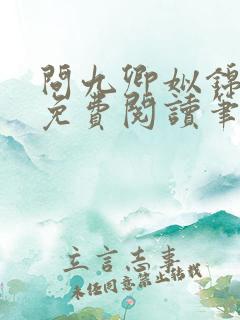 問九卿姒錦
免費閱讀筆
立言志事
未經同意禁止転載